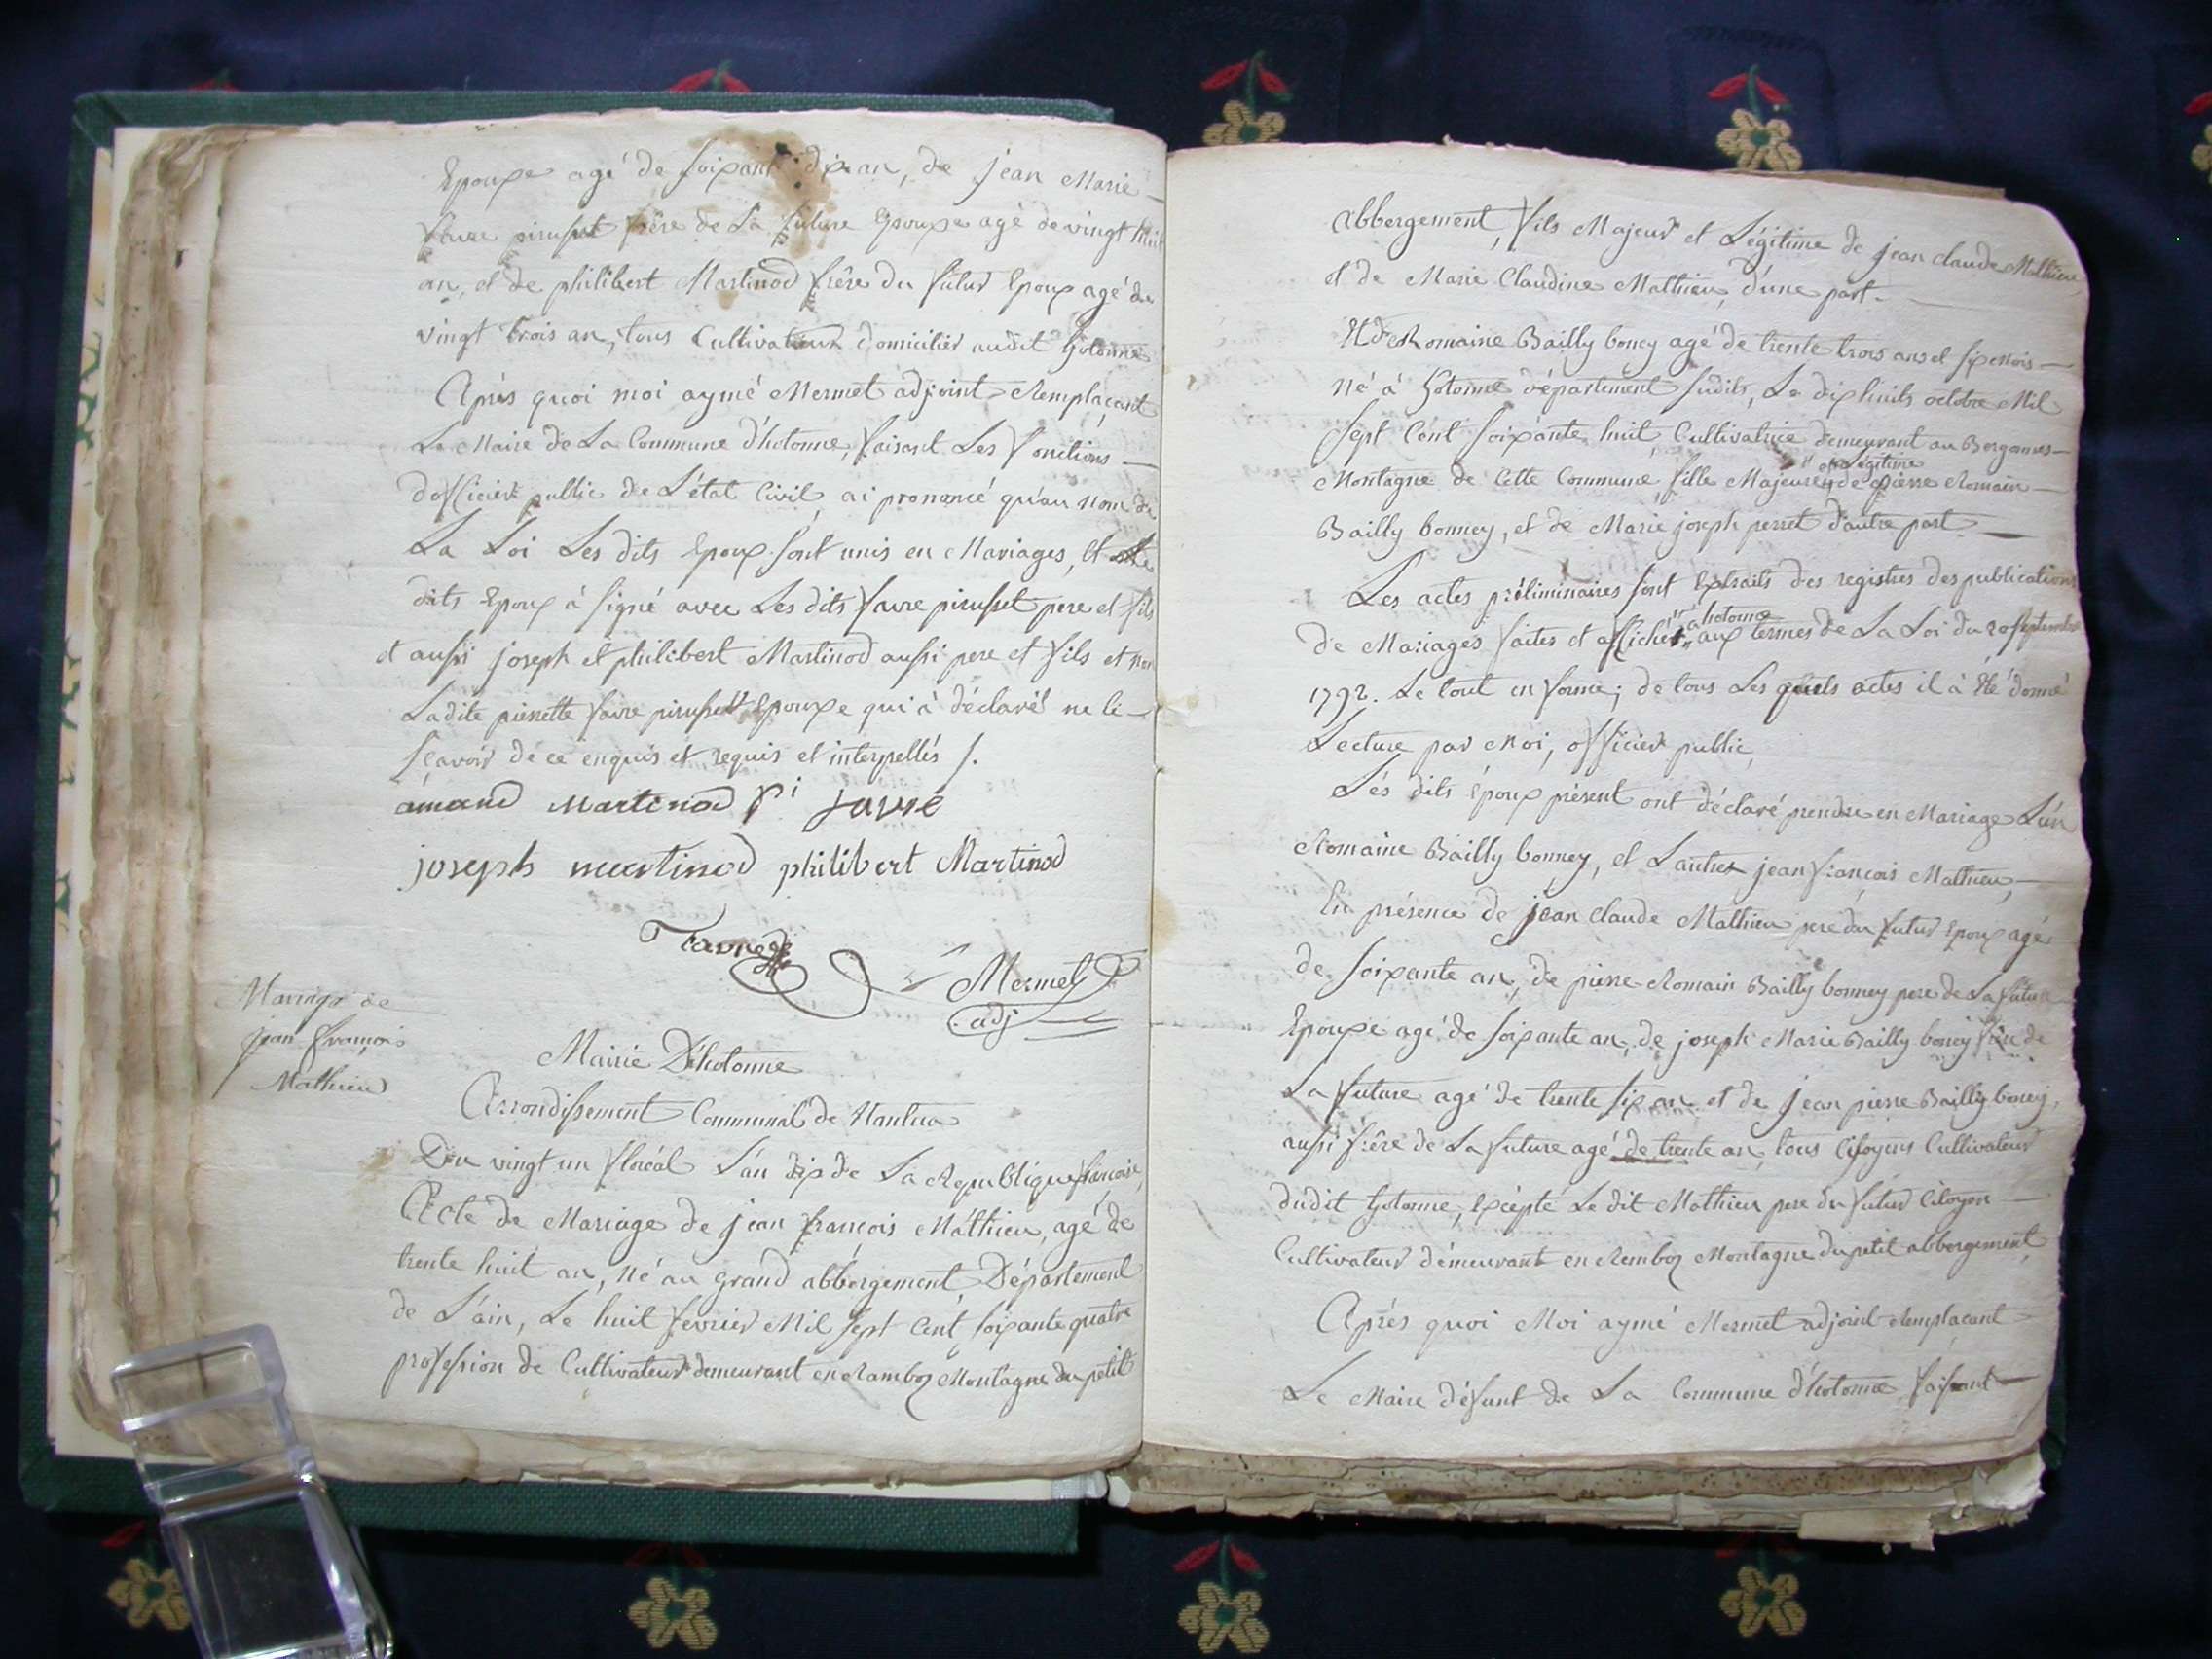 Epouxe agé de soixant dix an, de jean Marie
favre pirusset frère de La future Epouxe agé de vingt huit
an, et de philibert Martinod frère du futur Epoux agé de
vingt trois an, tous Cultivateur domicilier audit hotonne
Après quoi moi aymé Mermet adjoint Remplaçant
Le Maire de La Commune d'hotonne, faisant Les fonctions
dofficier public de L'état Civil, ai prononcé qu'au nom de
La Loi Les dits Epoux sont unis en Mariages, Et
dits Epoux à signé avec Les dits favre pirusset pere et fils
et aussi joseph et philibert Martinod aussi pere et fils et non
Ladite pierrette favre pirusset Epouxe qui à déclaré ne le
sçavoir de ce enquis et requis et interpellés /.
amand Martinod favre
joseph martinod philibert Martinod
favre
Mermet
adj
Mariage de
jean françois
Mathieu
Mairie D'hotonne
Arrondissement Communal de Nantua
Du vingt un floréal L'an dix de La Republique francoise,
Acte de Mariage de jean francois Mathieu, agé de
trente huit an, Né au grand abbergement, Département
de L'ain, Le huit fevrier Mil sept Cent soixante quatre
profession de Cultivateur demeurant en Ramboz Montagne du petit
abbergement, fils Majeur et Légitime de jean claude Mathieu,
et de Marie Claudine Mathieu, d'une part.
Et de Romaine Bailly boney agé de trente trois ans et six mois
Né à hotonne département sudits, Le dix huits octobre Mil
sept Cent soixante huit, Cultivatrice demeurant au Bergonnes
" et Légitime
Montagne de Cette Commune, fille Majeure " de pierre Romain
Bailly bonney, et de Marie joseph perret d'autre part
Les actes préliminaires sont Extraits des registres des publications
" à hotonne
de Mariages faites et affiches " aux termes de La Loi du 20 septembre
1792. Le tout en forme; de tous Les quels actes il à été donné
Lecture par Moi, officier public,
Lés dits Époux présent ont déclaré prendre en Mariage L'un
Romaine Bailly bonney, et L'autre jean françois Mathieu,
En présence de jean claude Mathieu pere du futur Epoux agé
de soixante an, de pierre Romain Bailly bonney pere de La future
Epouxe agé de soixante an, de joseph Marie Bailly boney frère de
La future agé de trente six an et de jean pierre Bailly boney,
aussi frère de La future agé de trente an, tous Citoyens Cultivateur
dudit hotonne, Excépté Le dit Mathieu pere du futur Citoyen
Cultivateur démeurant en Remboz Montagne du petit abbergement,
Après quoi Moi aymé Mermet adjoint Remplacant
Le Maire défunt de La Commune d'hotonne faisant